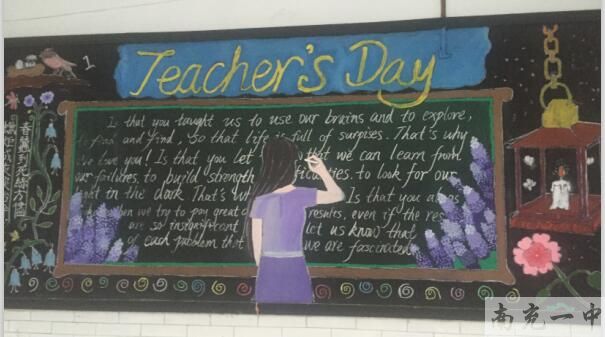 Teacher's Day
Is that you taught us to use our brains and to explore,
to find and find, so that life is full of surprises. That's why
we love you! Is that you let that we can learn from
our failures. to build strength to look for our
in the dark That's Is that you always
when we try to pay great results, even if the
are so insignificant let us know that
of each problem that we are fascinated
1
春蚕到死丝方尽
南充一中